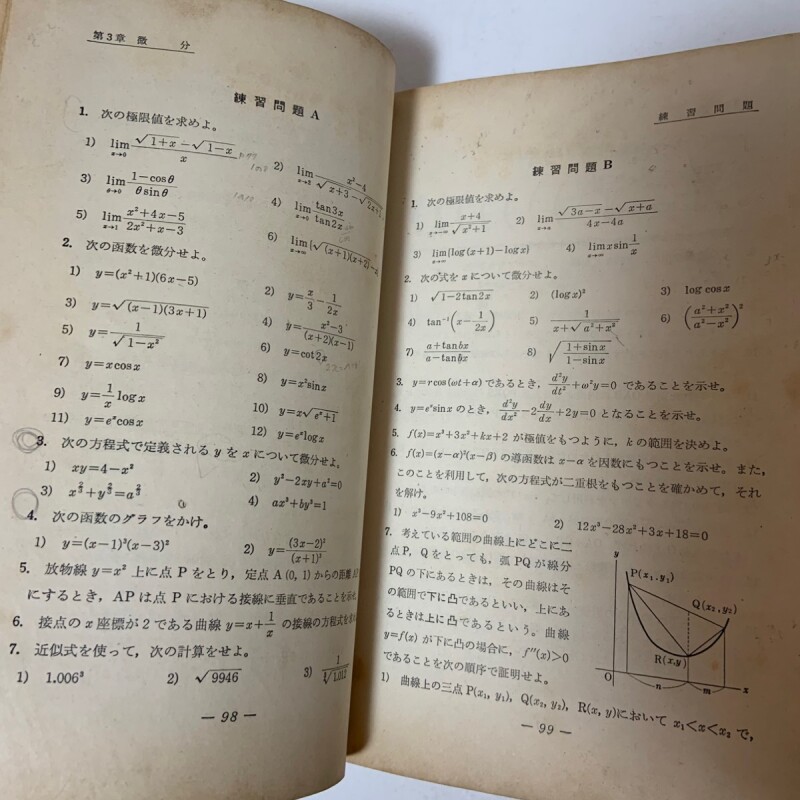 第3章 微 分
練習問題 A
1. 次の極限値を求めよ。
1) lim x→0 (√(1+x)−√(1−x))/x
2) lim x→2 (x²−4)/(√(x+3)−√(2x+
3) lim θ→0 (1−cosθ)/(θsinθ)
4) lim x→0 tan3x/tan2x
5) lim x→1 (x²+4x−5)/(2x²+x−3)
6) lim x→∞ {√((x+1)(x+2))−x
2. 次の函数を微分せよ。
1) y=(x²+1)(6x−5)
2) y=x/3−1/2x
3) y=√((x−1)(3x+1))
4) y=(x²−3)/((x+2)(x−1))
5) y=1/√(1−x²)
6) y=cot2x
7) y=xcosx
8) y=x²sinx
9) y=1/x logx
10) y=x√(eˣ+1)
11) y=eˣcosx
12) y=eˣlogx
3. 次の方程式で定義される y を x について微分せよ。
1) xy=4−x²
2) y²−2xy+a²=0
3) x^(2/3)+y^(2/3)=a^(2/3)
4) ax³+by³=1
4. 次の函数のグラフをかけ。
1) y=(x−1)³(x−3)²
2) y=(3x−2)²/(x+1)³
5. 放物線 y=x² 上に点 P をとり,定点 A(0, 1) からの距離 AP
にするとき,AP は点 P における接線に垂直であることを示せ
6. 接点の x 座標が2である曲線 y=x+1/x の接線の方程式を求
7. 近似式を使って,次の計算をせよ。
1) 1.006³
2) √9946
3) 1/∛1.012
— 98 —
練 習 問 題
練習問題 B
1. 次の極限値を求めよ。
1) lim x→−∞ (x+4)/√(x²+1)
2) lim x→a (√(3a−x)−√(x+a))/(4x−4a)
3) lim x→∞ {log(x+1)−logx}
4) lim x→∞ xsin1/x
2. 次の式を x について微分せよ。
1) √(1−2tan2x)
2) (logx)²
3) logcosx
4) tan⁻¹(x−1/2x)
5) 1/(x+√(a²+x²))
6) ((a²+x²)/(a²−x²))²
7) (a+tanbx)/(a−tanbx)
8) √((1+sinx)/(1−sinx))
3. y=rcos(ωt+α)であるとき,d²y/dt²+ω²y=0 であることを示せ。
4. y=eˣsinx のとき,d²y/dx²−2dy/dx+2y=0 となることを示せ。
5. f(x)=x³+3x²+kx+2 が極値をもつように,k の範囲を決めよ。
6. f(x)=(x−α)²(x−β) の導函数は x−α を因数にもつことを示せ。また,
このことを利用して,次の方程式が二重根をもつことを確かめて,それ
を解け。
1) x³−9x²+108=0
2) 12x³−28x²+3x+18=0
7. 考えている範囲の曲線上にどこに二
点 P, Q をとっても,弧 PQ が線分
PQ の下にあるときは,その曲線はそ
の範囲で下に凸であるといい,上にあ
るときは上に凸であるという。曲線
y=f(x) が下に凸の場合に,f″(x)>0
であることを次の順序で証明せよ。
y
P(x₁, y₁)
Q(x₂, y₂)
R(x,y)
O
n
m
x
1) 曲線上の三点 P(x₁, y₁), Q(x₂, y₂), R(x, y)において x₁<x<x₂ で,
— 99 —